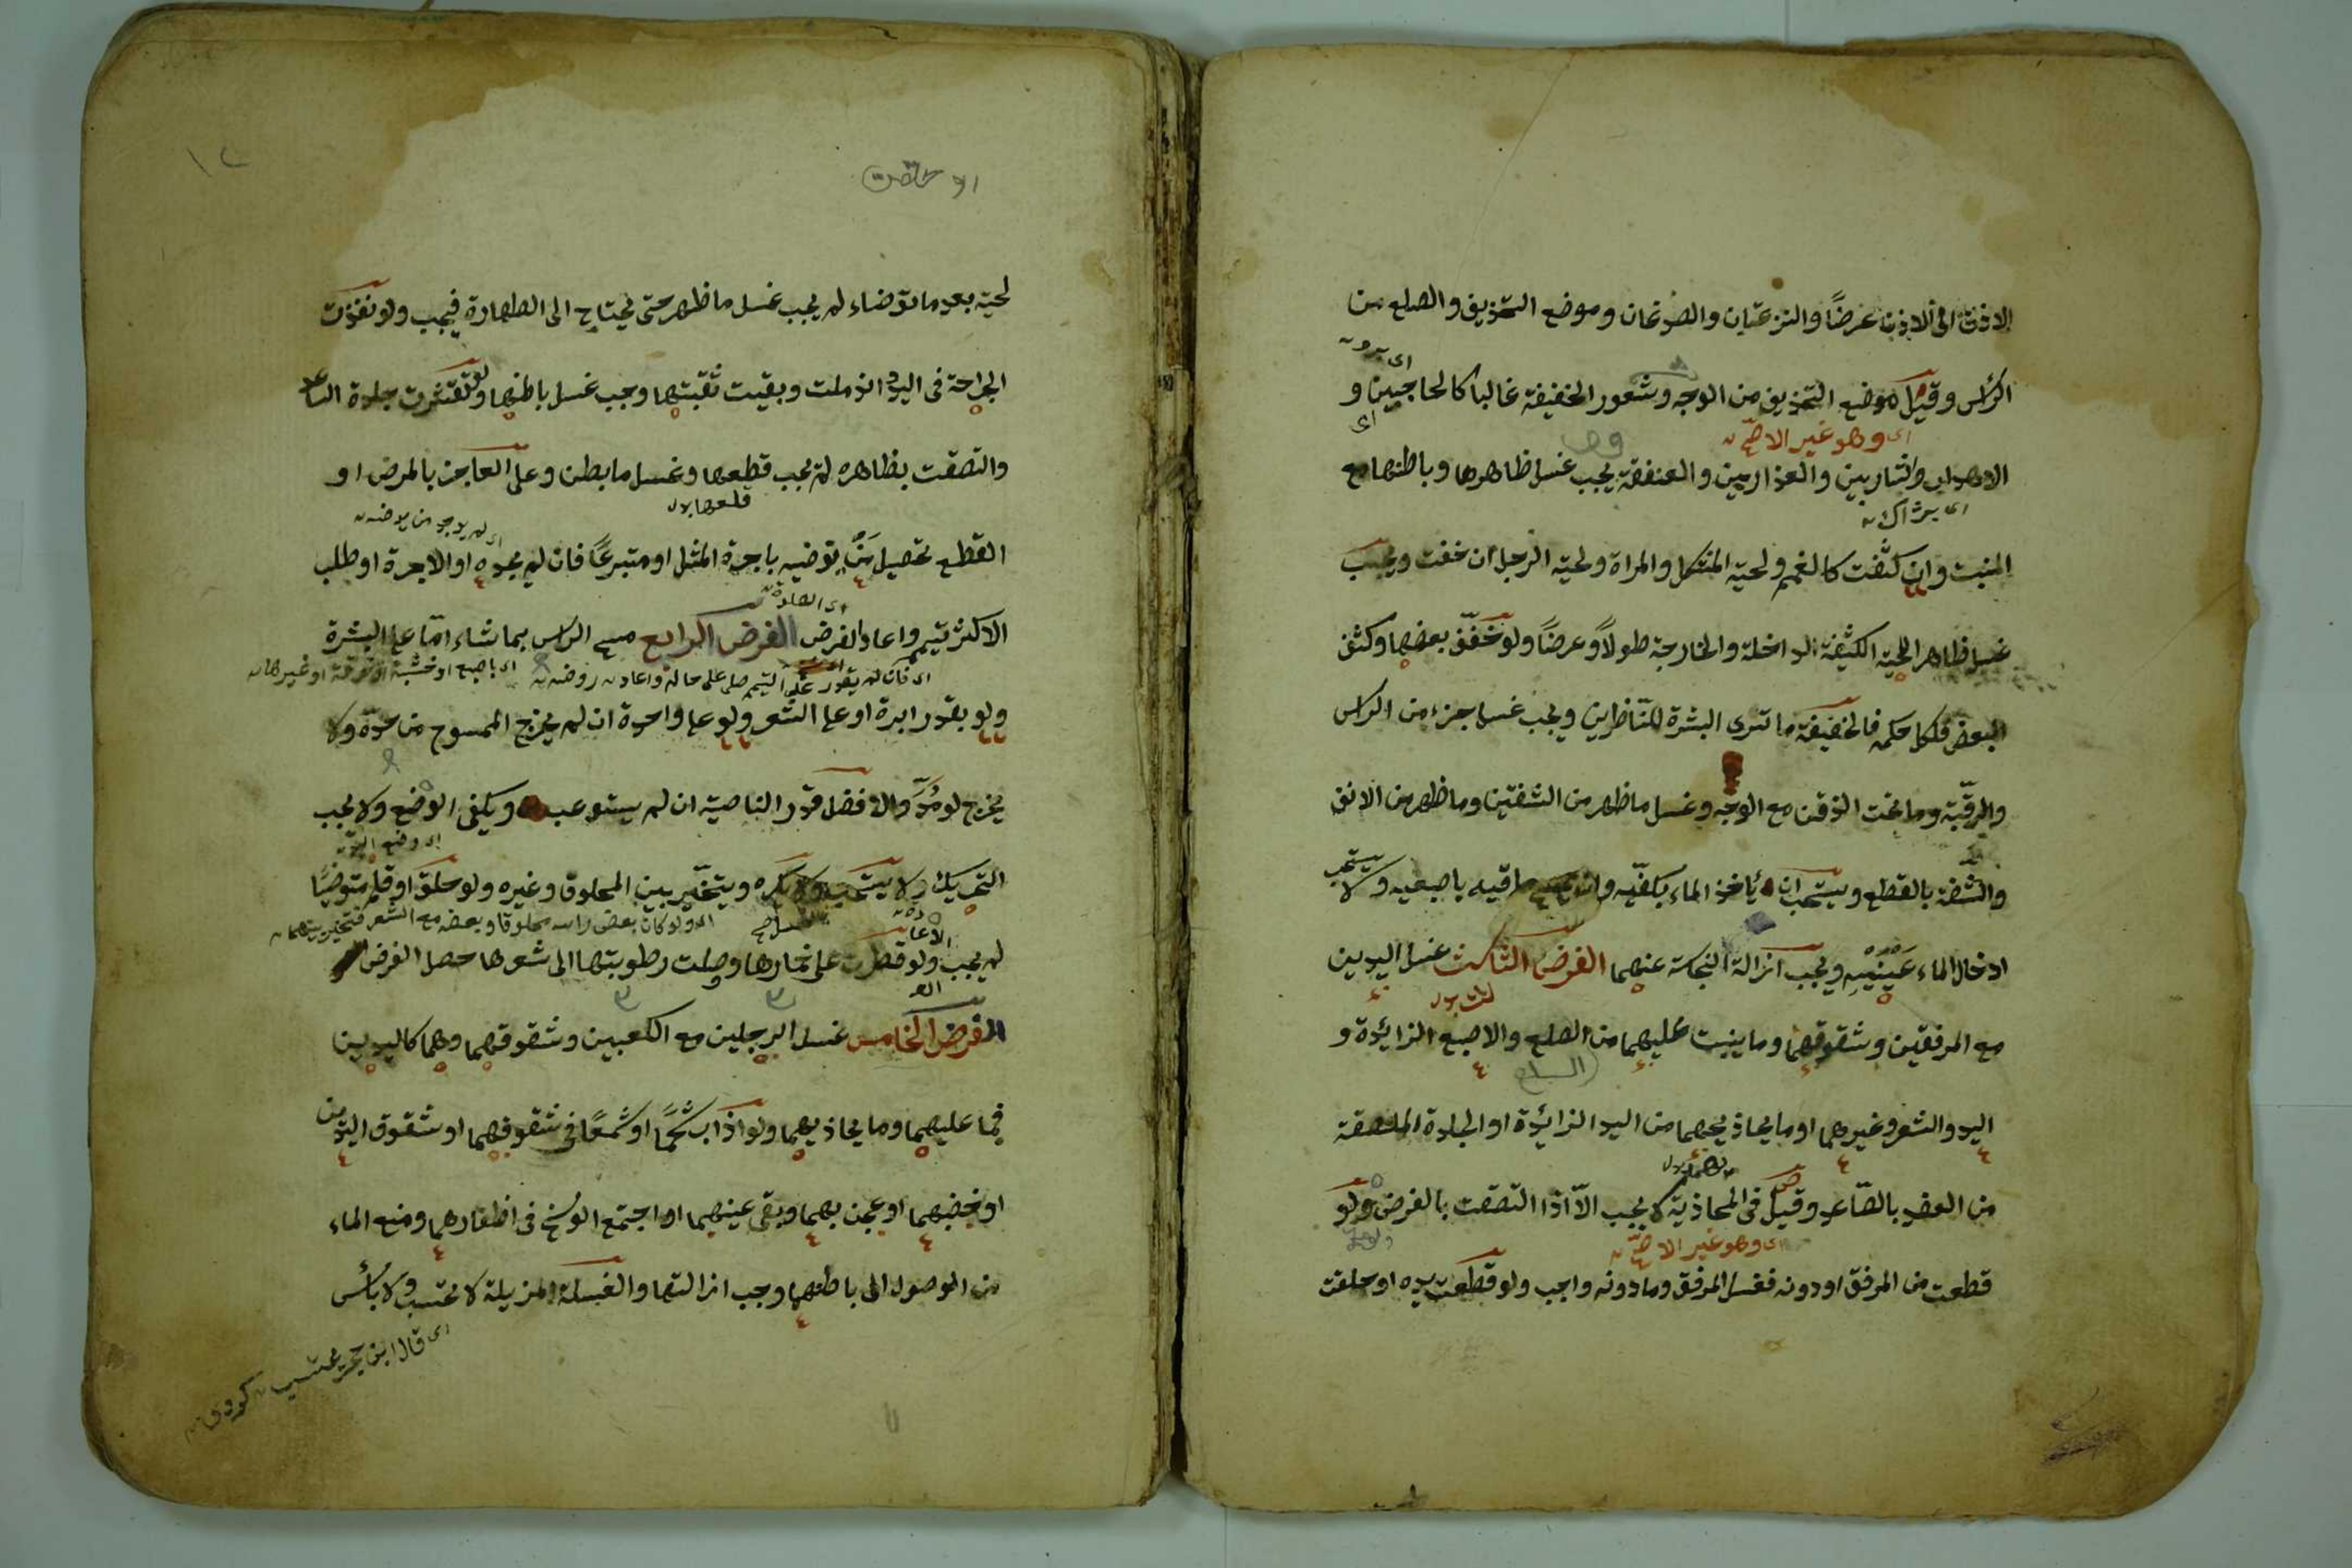 الاذن الى الاذن عرضًا والنزعتيان والصدغان وموضع التحذيف والصلع من
الرأس وقيل موضع التحذيف من الوجه وشعور الخفيفة غالبا كالحاجبين و
اى وهو غير الاصح
الاهداب والشاربين والعذارين والعنفقة يجب غسل ظاهرها وباطنها مع
المنبت وان كثفت كالغمم ولحية المشكل والمراة ولحية الرجل ان خفت ويجب
غسل ظاهر اللحية الكثيفة الداخلة والخارجة طولاً وعرضاً ولو تخفّف بعضها وكثف
البعض فلكل حكمه فالخفيفة ما ترى البشرة للنّاظرين ويجب غسل جزء من الراس
والرقبة وما تحت الذقن مع الوجه وغسل ما ظهر من الشفتين وما ظهر من الانف
والشفة بالقطع ويستحب ان يأخذ الماء بكفّيه و ماقيه باصبعيه ولا يستحب
ادخال الماء عينيه ويجب ازالة النجاسة عنهما الفرض الثالث غسل اليدين
مع المرفقين وشقوقهما وما ينبت عليهما من الصلع والاصبع الزائدة و
اليد والشعر وغيرهما او ما يحاذيهما من اليد الزائدة او الجلدة الملتصقة
من العضد بالصّاعد وقيل فى المحاذية لا يجب الاّ اذا التصقت بالفرض ولو
اى وهو غير الاصح
قطعت من المرفق او دونه فغسل المرفق وما دونه واجب ولو قطعت يده او حلقت
١٢
لحيته بعد ما توضاء لم يجب غسل ما ظهر حتى يحتاج الى الطهارة فيجب ولو نفذت
الجراحة فى اليد اندملت وبقيت ثقبتها وجب غسل باطنها ولو تقشرت جلدة الساعد
والتصقت بظاهره لم يجب قطعها وغسل ما بطن وعلى العاجز بالمرض او
قلعها بدل
اى لم يوجد من يوضئه
القطع تحصيل مَن يوضيه باجرة المثل او متبرعًا فان لم يجده او الاجرة او طلب
اى الصلوة
الاكثر تيمم واعاد الفرض الفرض الرابع مسح الراس بما شاء امّا على البشرة
اى فان لم يقدر على التيمم صلى على حاله واعاد روضه اى باصبع او خشبة او خرقة او غيرها
ولو بقدر ابرة او على الشعر ولو على واحدة ان لم يخرج الممسوح من حدّه ولا
يخرج لو مُدّ والافضل قدر الناصية ان لم يستوعب ويكفى الوضع ولا يجب
اى وضع اليد
التحريك ولا يستحب ولا يكره ويتخيّر بين المحلوق وغيره ولو حلق او قلم متوضيًا
اى ولو كان بعض راسه محلوقا وبعضه مع الشعر فتخير بينهما
لم يجب ولو قطرت على خمارها وصلت رطوبتها الى شعرها حصل الفرض
الفرض الخامس غسل الرجلين مع الكعبين وشقوقهما وهما كاليدين
فيما عليهما وما يحاذيهما ولو اذاب شحمًا او شمعًا فى شقوقهما او شقوق اليدين
او نخضبهما او عجن بهما وبقى عينهما او اجتمع الوسخ فى اظفارهما ومنع الماء
من الوصول الى باطنهما وجب ازالتها والغسلة المزيلة لا تحتسب ولا بأس
اى قال ابن حجر تحتسب كردى